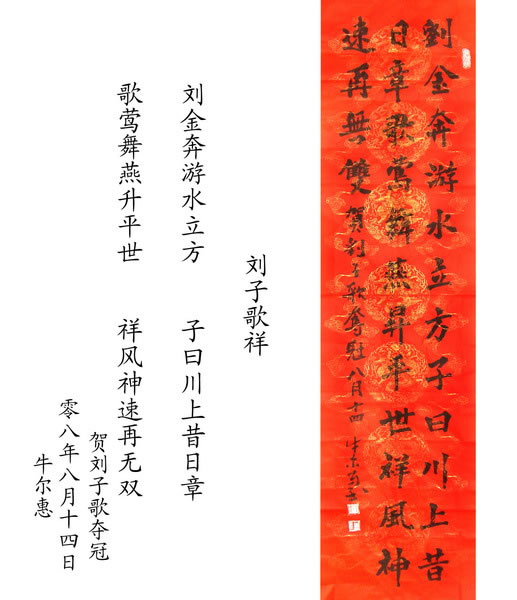 劉金奔游水立方子曰川上昔
日章歌莺舞燕昇平世祥風神
速再無雙 賀刘子歌奪冠八月十四 牛尔惠
刘子歌祥
刘金奔游水立方 子曰川上昔日章
歌莺舞燕升平世 祥风神速再无双
贺刘子歌夺冠
零八年八月十四日
牛尔惠